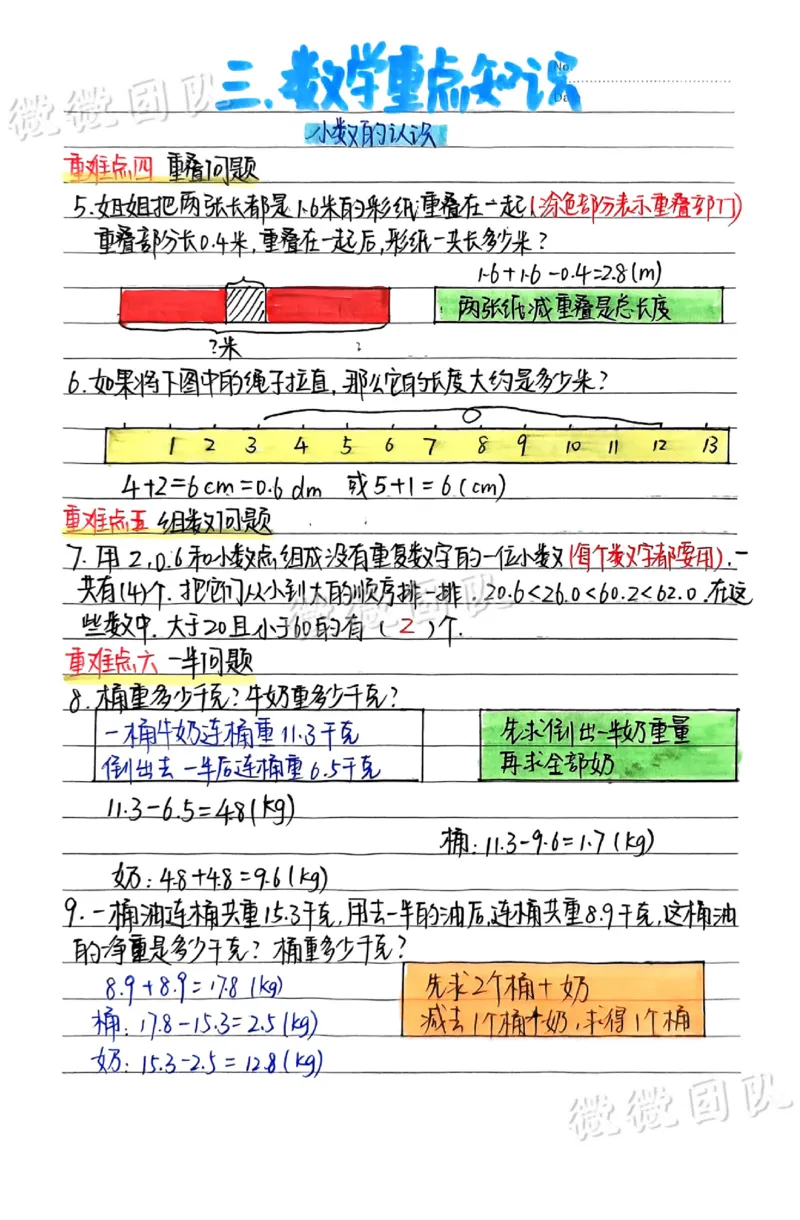 微微团队
三、数学重点知识
No.
Da
小数的认识
重难点四 重叠问题
5.姐姐把两张长都是1.6米的彩纸重叠在一起(涂色部分表示重叠部门)
重叠部分长0.4米,重叠在一起后,彤纸一共长多少米?
1.6+1.6-0.4=2.8(m)
两张纸减重叠是总长度
?米
6.如果将下图中的绳子拉直,那么它的长度大约是多少米?
1 2 3 4 5 6 7 8 9 10 11 12 13
4+2=6cm=0.6dm 或5+1=6(cm)
重难点五 组数问题
7.用2,0.6和小数点组成没有重复数字的一位小数(每个数字都要用).一
共有(4)个.把它们从小到大的顺序排一排.20.6<26.0<60.2<62.0.在这
些数中.大于20且小于60的有(2)个.
微微团队
重难点六 一半问题
8.桶重多少千克?牛奶重多少千克?
一桶牛奶连桶重11.3千克
倒出去一半后连桶重6.5千克
先求倒出一半奶重量
再求全部奶
11.3-6.5=4.8(kg)
桶:11.3-9.6=1.7(kg)
奶:4.8+4.8=9.6(kg)
9.一桶油连桶共重15.3千克,用去一半的油后,连桶共重8.9千克,这桶油
的净重是多少千克?桶重多少千克?
8.9+8.9=17.8(kg)
桶:17.8-15.3=2.5(kg)
奶:15.3-2.5=12.8(kg)
先求2个桶+奶
减去1个桶+奶,求得1个桶
微微团队